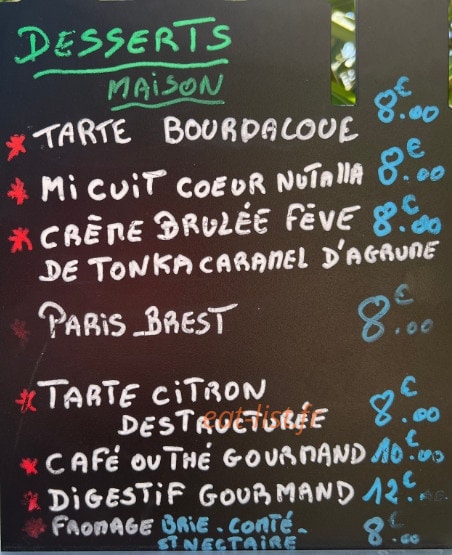 DESSERTS
MAISON
TARTE BOURDALOUE 8€.00
MI CUIT COEUR NUTALLA 8€.00
CRÈME BRULÉE FÈVE 8€.00
DE TONKA CARAMEL D'AGRUME
PARIS_BREST 8€.00
TARTE CITRON
DESTRUCTURÉE 8€.00
eat-list.fr
CAFÉ OU THÉ GOURMAND 10€.00
DIGESTIF GOURMAND 12€.00
FROMAGE BRIE. COMTÉ. 8€.00
ST NECTAIRE